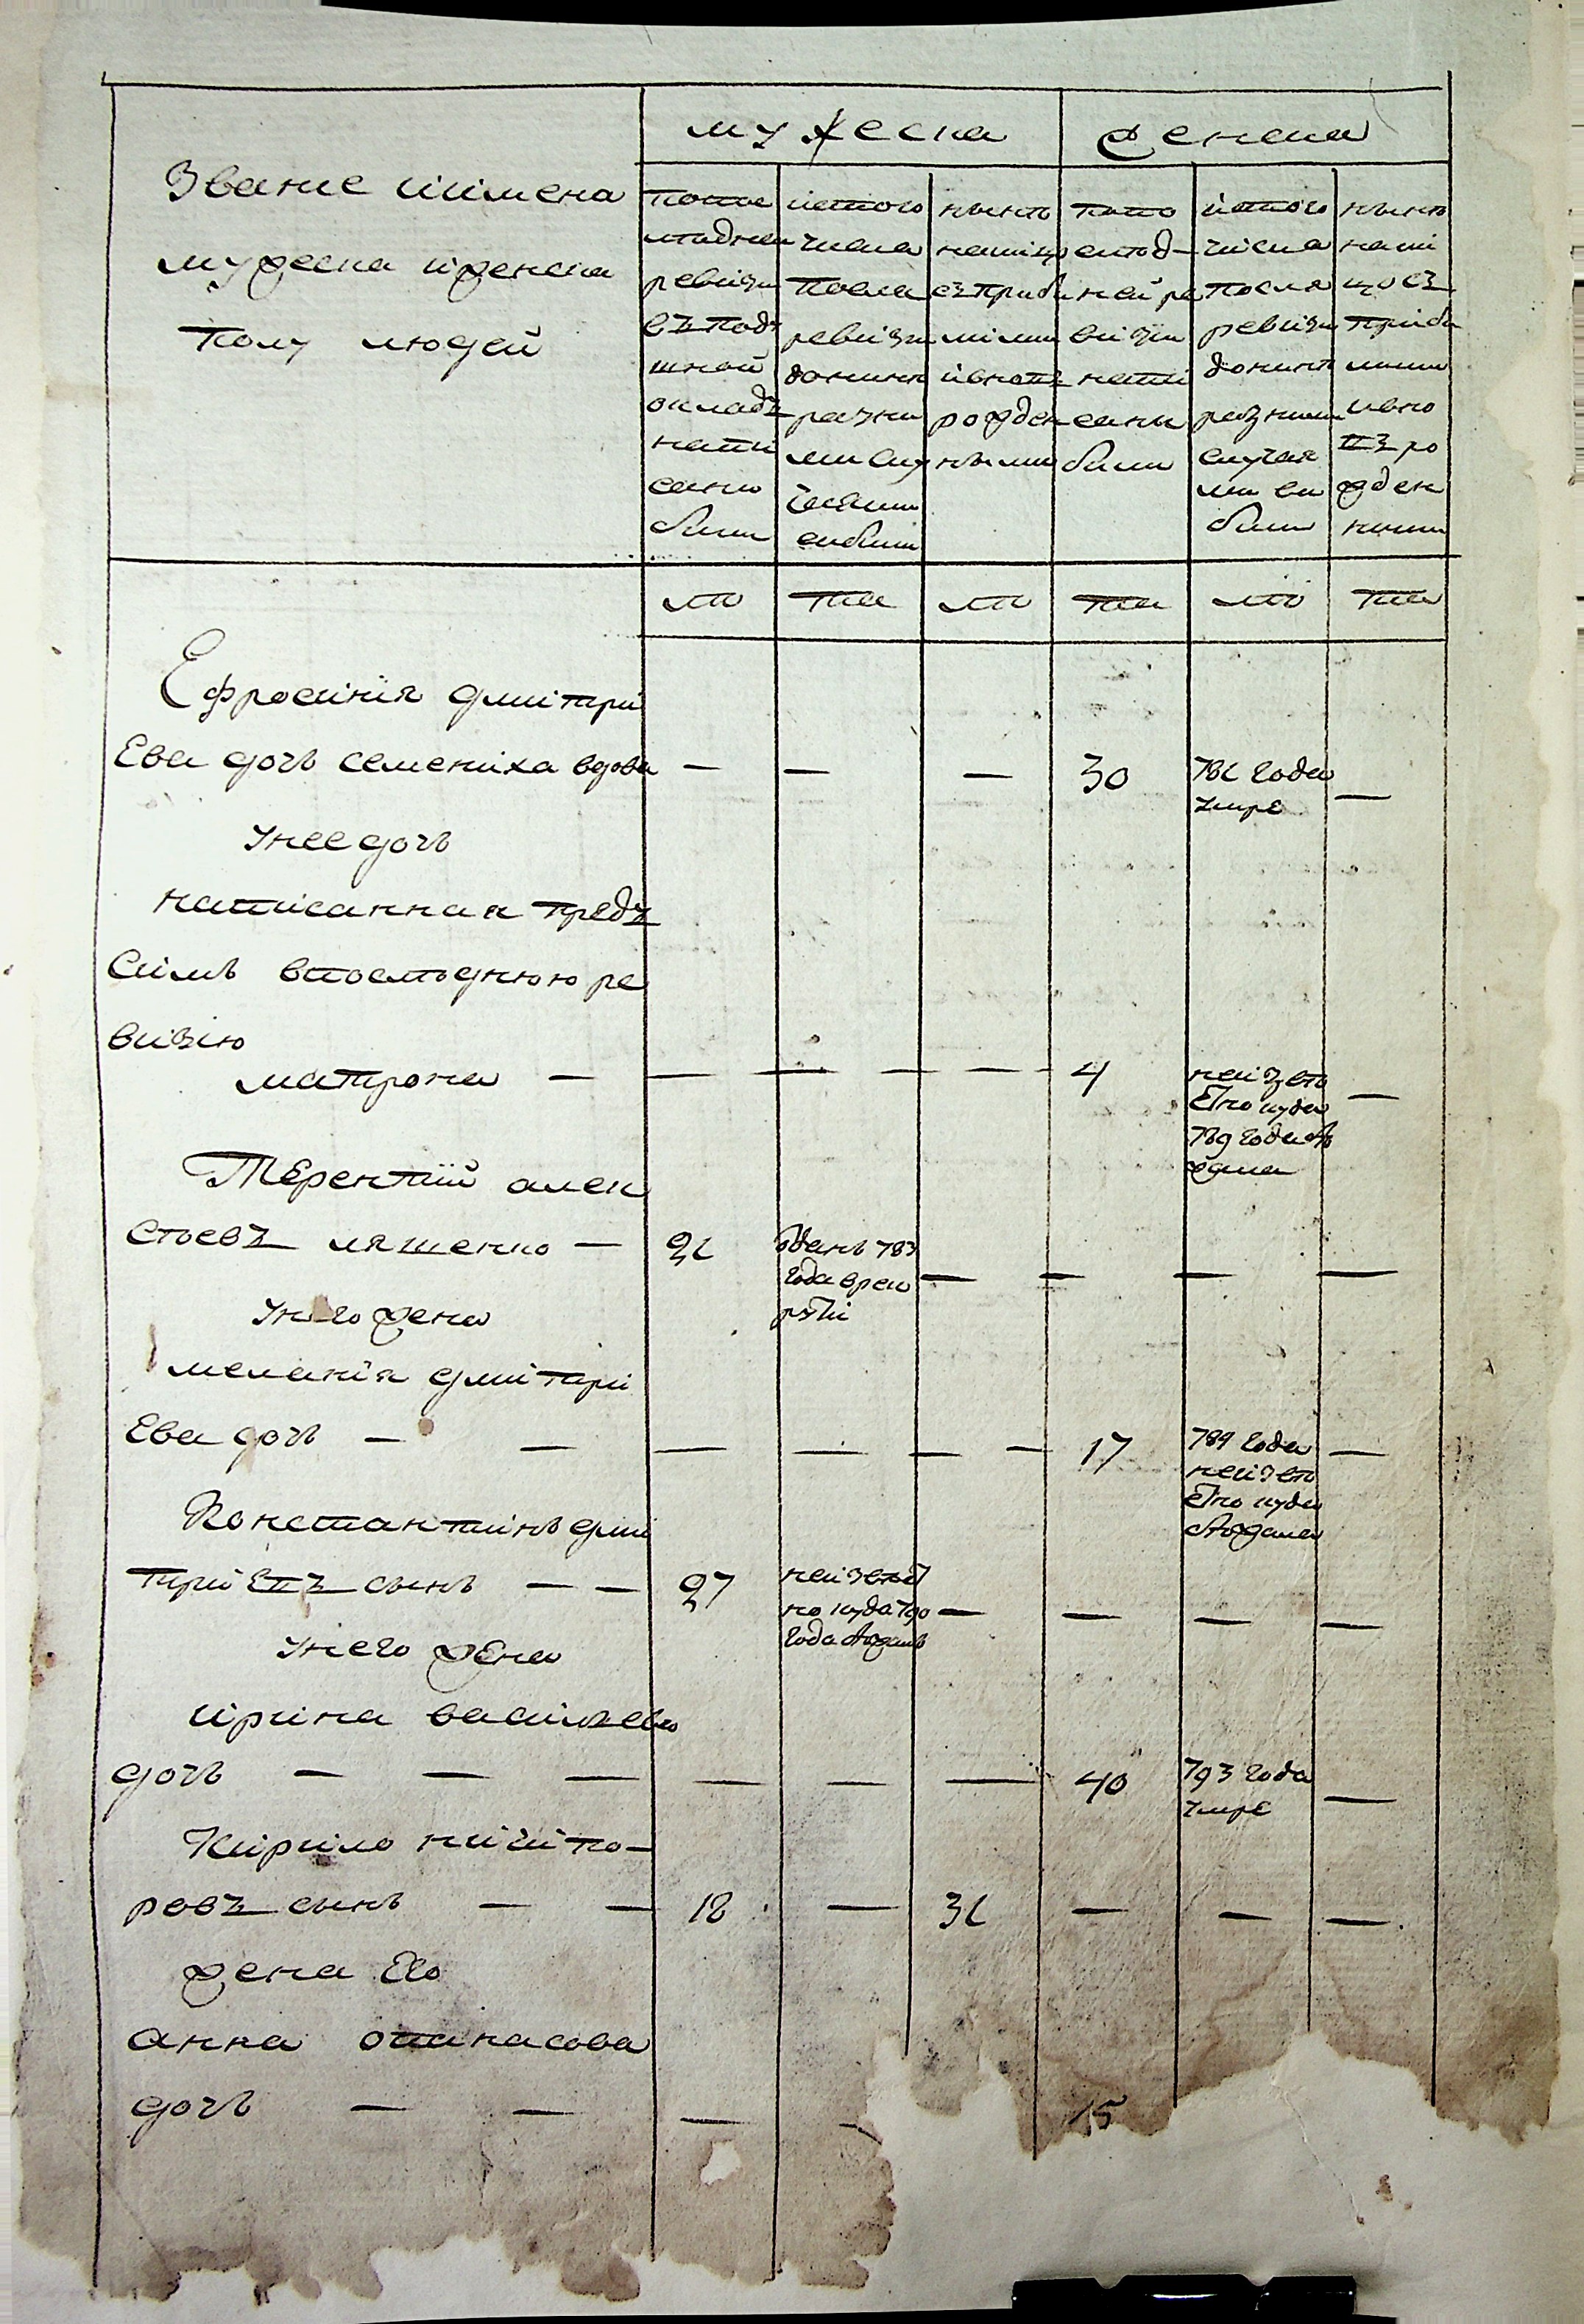 Звание иимена
мужеска иженска
полу людей
мужеска
женска
попос
лѣдней
ревизи
въ поду
шной
окладъ
напи
сано
были
изтого
числа
посла
ревизи
донине
разни
ми слу
чаями
выбыли
нынѣ
налицо
съприбы
лыми
ивновь
рожден
ными
попо
слѣд-
ней ре
визии
напи
саны
были
изтого
числа
посля
ревизи
донинѣ
разними
случая
ми вы
были
нынѣ
нали
цо съ
прибы
лыми
ивно
въ ро
жден
ними
лѣ
та
лѣ
та
лѣ
та
Ефросинія дмитри
Ева дочь семениха вдова — — — 30 —
умре
унее дочь
написанная предъ
симъ впослѣднюю ре
визію
матрона — — — — — 4 —
неизвѣ
стно куда
789 года
Терентий алек
сѣевъ ляшенко —
годанъ 783
года врек
руты
— — — —
унего жена
меланія дмитри
Ева дочь — — — — — — 17 —
789 года
неизвѣ
стно куда
збѣжала
Константинъ дми
триевъ сынъ — — 27 — — — —
неизвѣст
но куда 790
года збѣжалъ
унего жена
ирина васильева
дочь — — — — — — 40 —
793 года
умре
Кирило ничипо-
ровъ сынъ — — 18 — — — —
жена Его
анна опанасова
дочь — — — — 15